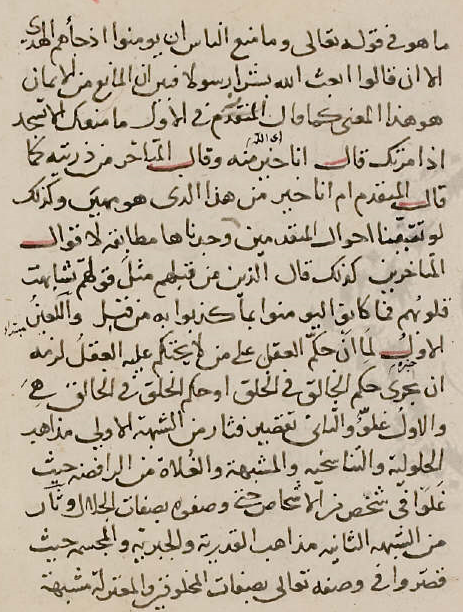 ما هو في قوله تعالى وما منع الناس ان يومنوا اذ جاهم الهدى
الا ان قالوا ابعث الله بشرا رسولا فبين ان المانع من الايمان
هو هذا المعنى كما قال المتقدم في الاول ما منعك الا تسجد
اذ امرتك قال انا خير منه وقال المتاخر من ذريته كما
قال المتقدم ام انا خير من هذا الذى هو مهين وكذلك
لو تعقبنا احوال المتقدمين وجدناها مطابقه لاقوال
المتاخرين كذلك قال الذين من قبلهم مثل قولهم تشابهت
قلوبهم فما كانوا ليومنوا بما كذبوا به من قبل واللعين
الاول لما ان حكم العقل على من لا يحتكم عليه العقل لزمه
ان يجرى حكم الخالق في الخلق او حكم الخلق في الخالق
والاول غلو والثانى تقصير فثار من الشبهة الاولى مذاهب
الحلولية والتناسخية والمشبهة والغلاة من الرافضة حيث
غلوا فى شخص من الاشخاص حتى وصفوه بصفات الجلال وثار
من الشبهة الثانيه مذاهب القدرية والجبرية والمجسمه حيث
قصروا في وصفه تعالى بصفات المخلوقين والمعتزلة مشبهة